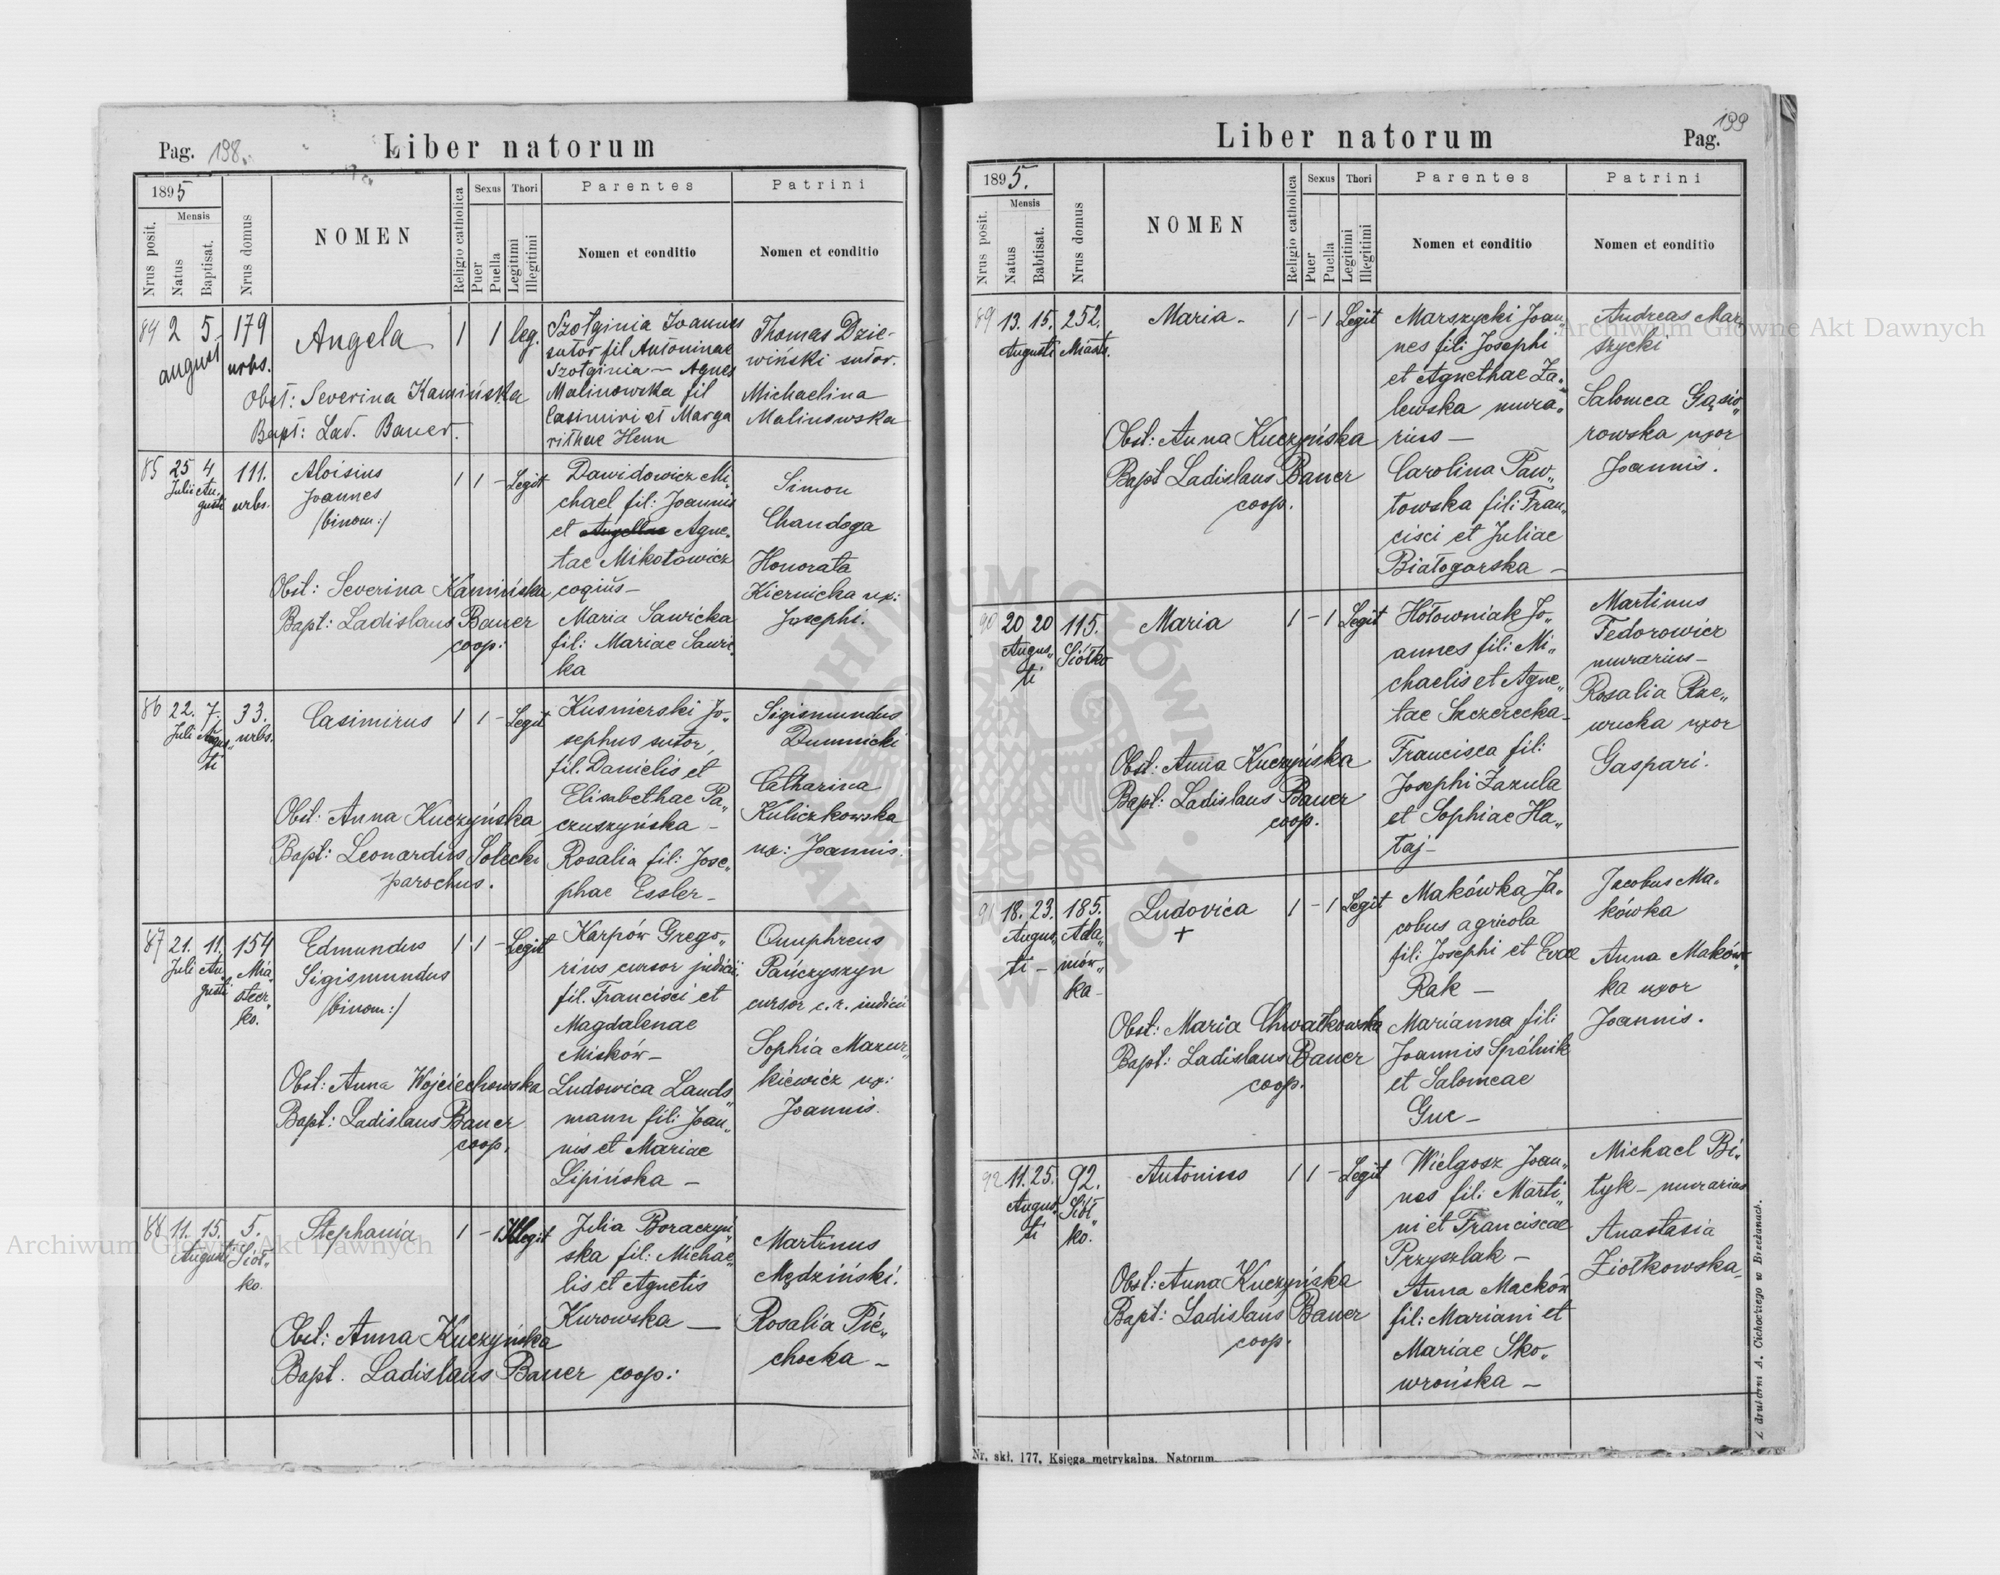 Pag. 198.
Liber natorum
1895
Nrus posit.
Mensis
Natus
Baptisat.
Nrus domus
NOMEN
Religio catholica
Sexus
Puer
Puella
Thori
Legitimi
Illegitimi
Parentes
Nomen et conditio
Patrini
Nomen et conditio
84 2 5. 179 Angela 1 1 leg.
august urbs.
Obst: Severina Kamińska
Bapt: Lad. Bauer.
Szołginia Joannes
sutor fil Antoninae
Szołginia — Agnes
Malinowska fil
Casimiri et Marga
rithae Henn
Thomas Dzie-
wiński sutor.
Michaelina
Malinowska
85 25 4 111. Aloisius 1 1 - Legit
Julii Au,, urbs. Joannes
gusti /binom:/
Obst: Severina Kamińska
Bapt: Ladislaus Bauer
coop:
Dawidowicz Mi,,
chael fil: Joannis
et Agne,,
tae Mikołowicz
coquus —
Maria Sawicka
fil: Mariae Sawi,,
ka
Simon
Chandoga
Honorata
Kiernicka ux:
Josephi.
86 22. 7. 33. Casimirus 1 1 - Legit
Juli Augus,, urbs.
ti
Obst: Anna Kuczyńska
Bapt: Leonardus Solecki
parochus.
Kusnierski Jo,,
sephus sutor,
fil. Danielis et
Elisabethae Pa,,
czuszyńska —
Rosalia fil: Jose,,
phae Essler —
Sigismundus
Dumnicki
Catharina
Kuliczkowska
ux: Joannis.
87 21. 11. 154 Edmundus 1 1 - Legit
Juli Au,, Mia,, Sigismundus
gusti stecz,, /binom:/
ko.
Obst: Anna Wojciechowska
Bapt: Ladislaus Bauer
coop.
Karpów Grego,,
rius cursor judicii
fil. Francisci et
Magdalenae
Misków —
Ludowica Lands,,
mann fil: Joan,,
nis et Mariae
Lipińska —
Onuphreus
Pańczyszyn
cursor c. r. indicii
Sophia Mazur,,
kiewicz ux:
Joannis.
88 11. 15. 5. Stephania 1 - 1 Illegit
Augusti Siół,,
ko.
Obst: Anna Kuczyńska
Bapt. Ladislaus Bauer coop:
Julia Boraczyń,,
ska fil: Michae,,
lis et Agnetis
Kurowska —
Martinus
Mędziński.
Rosalia Pie,,
chocka —
Liber natorum
Pag. 199
1895.
Nrus posit.
Mensis
Natus
Babtisat.
Nrus domus
NOMEN
Religio catholica
Sexus
Puer
Puella
Thori
Legitimi
Illegitimi
Parentes
Nomen et conditio
Patrini
Nomen et conditio
89 13. 15. 252. Maria - 1 - 1 Legit
Augusti Miasto.
Obst: Anna Kuczyńska
Bapt Ladislaus Bauer
coop.
Marszycki Joan,,
nes fili Josephi
et Agnethae Za,,
lewska mura,,
rius —
Carolina Paw,,
łowska fili Fran,,
cisci et Juliae
Białogorska —
Andreas Mar,,
szycki
Salomea Gąsio,,
rowska uxor
Joannis.
90 20 20 115. Maria 1 - 1 Legit
Augus,, Siółko
ti
Obst: Anna Kuczyńska
Bapt: Ladislaus Bauer
coop.
Hołowniak Jo,,
annes fil: Mi,,
chaelis et Agne,,
tae Szczerecka —
Francisca fil:
Josephi Zazula
et Sophiae Ha,,
taj —
Martinus
Fedorowicz
murarius —
Rosalia
uxor
Gaspari.
91 18. 23. 185. Ludovica 1 - 1 Legit
Augus,, Ada,, +
ti — mów,,
ka —
Obst: Maria Chwałkowska
Bapt: Ladislaus Bauer
coop.
Makówka Ja,,
cobus agricola
fil: Josephi et Evae
Rak —
Marianna fil:
Joannis Spólnik
et Salomeae
Guc —
Jacobus Ma,,
kówka
Anna Maków,,
ka uxor
Joannis.
92 11. 25. 92. Antonius 1 1 - Legit
Augus,, Siół,,
ti ko.
Obst: Anna Kuczyńska
Bapt: Ladislaus Bauer
coop.
Wielgosz Joan,,
nes fil: Marti,,
ni et Franciscae
Przyszlak —
Anna Macków
fil: Mariani et
Mariae Sko,,
wrońska —
Michael Bi,,
tyk — murarius
Anastasia
Ziołkowska
Nr. skł. 177. Księga metrykalna. Natorum
Z drukarni A. Cichockiego w Brzeżanach.
Archiwum Główne Akt Dawnych
Archiwum Główne Akt Dawnych
ARCHIWUM GŁÓWNE · AKT DAWNYCH ·